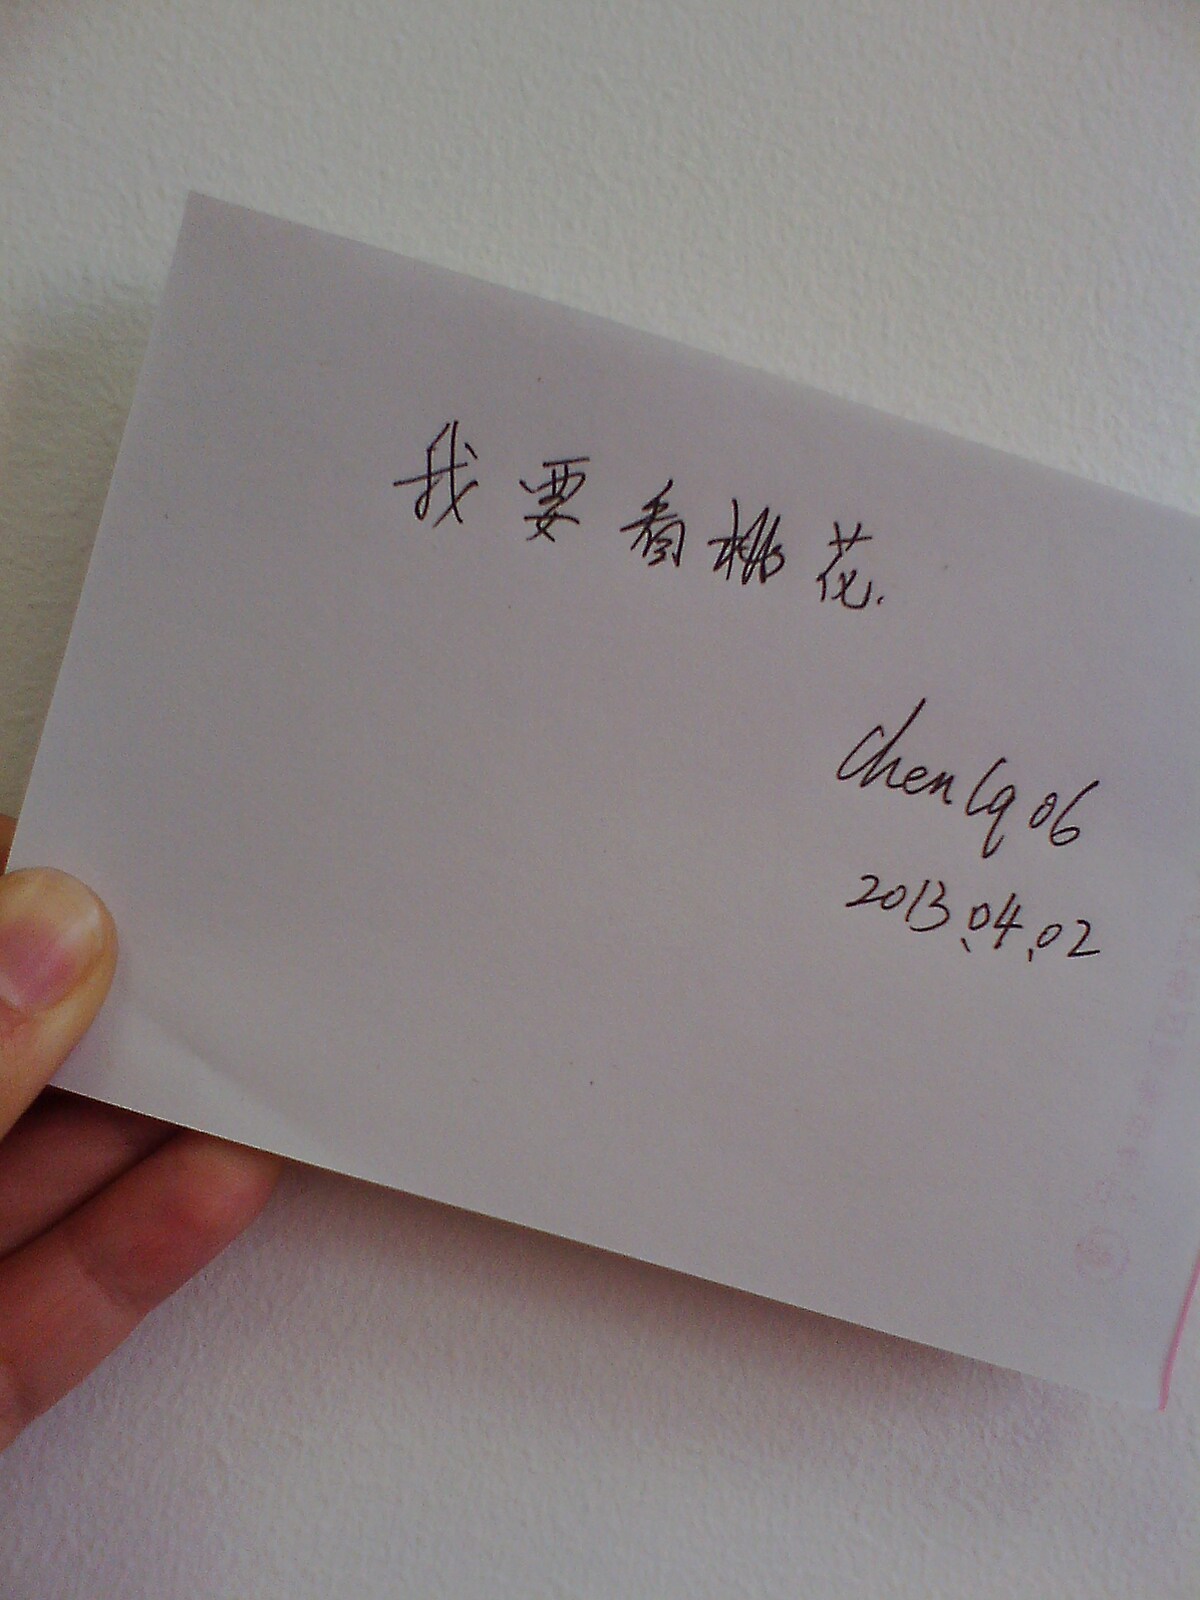 我要看桃花.
chenlq06
2013.04.02